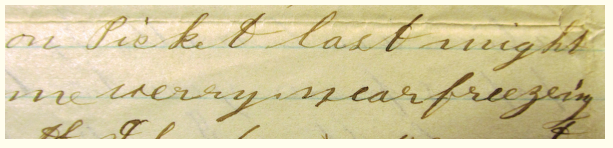 on Picket last night
me werry near freezeing